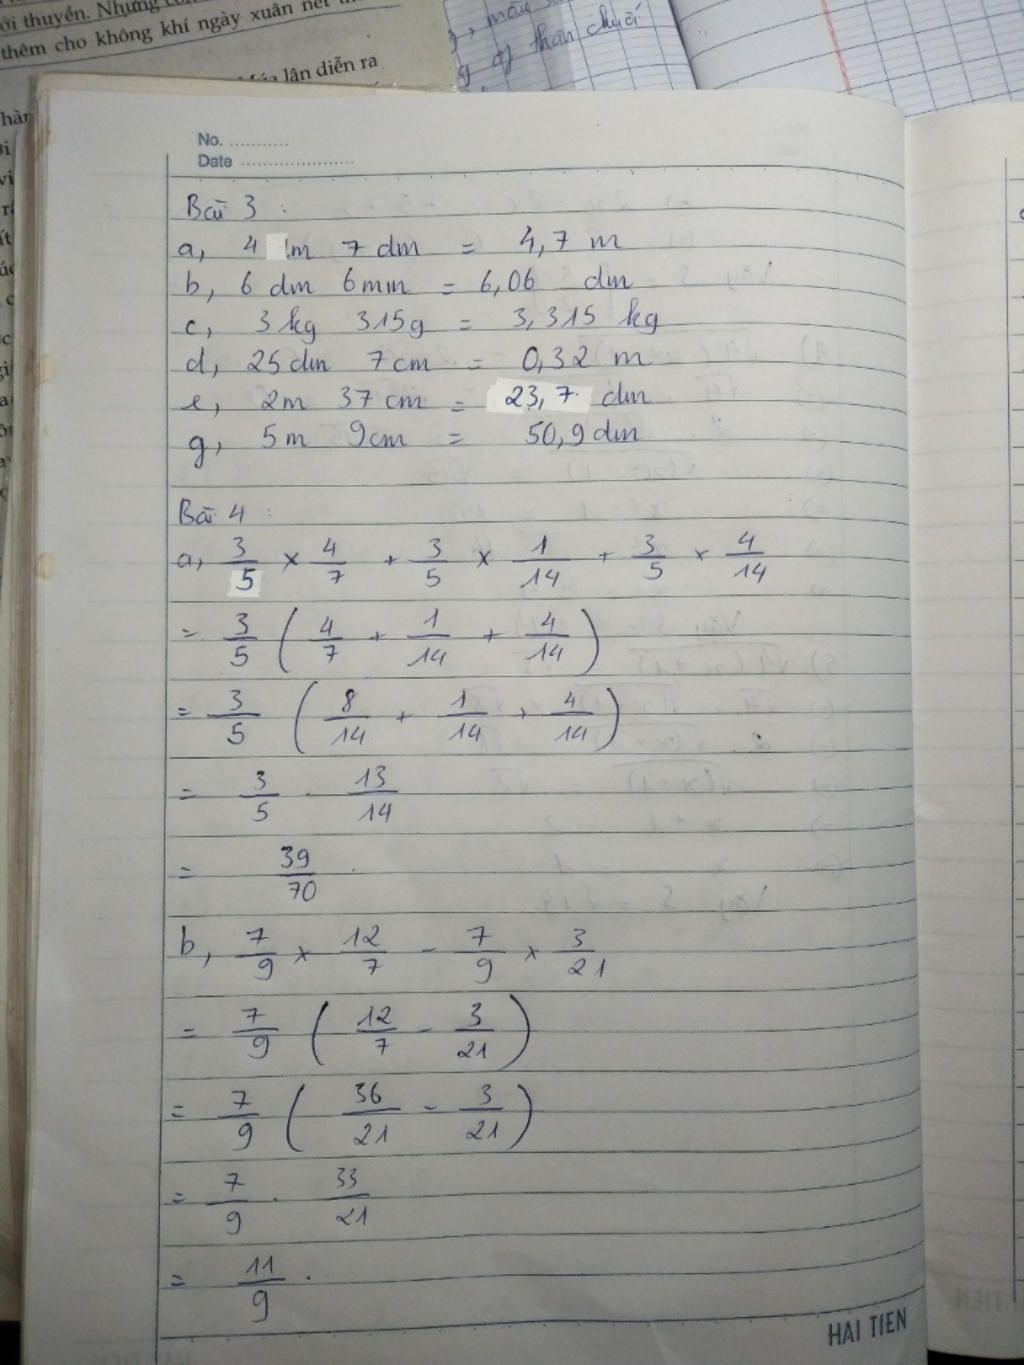 ời thuyền. Nhưng
thêm cho không khí ngày xuân nét
lân diễn ra
of thân chuối
No. ...........
Date .....................
Bài 3 :
a, 4 m 7 dm = 4,7 m
b, 6 dm 6mm = 6,06 dm
c, 3 kg 315g = 3,315 kg
d, 25 dm 7 cm = 0,32 m
e, 2m 37 cm = 23,7 dm
g, 5m 9cm = 50,9 dm
Bài 4 :
a, 3/5 × 4/7 + 3/5 × 1/14 + 3/5 × 4/14
= 3/5 ( 4/7 + 1/14 + 4/14 )
= 3/5 ( 8/14 + 1/14 + 4/14 )
= 3/5 . 13/14
= 39/70 .
b, 7/9 × 12/7 - 7/9 × 3/21
= 7/9 ( 12/7 - 3/21 )
= 7/9 ( 36/21 - 3/21 )
= 7/9 . 33/21
= 11/9 .
HAI TIEN